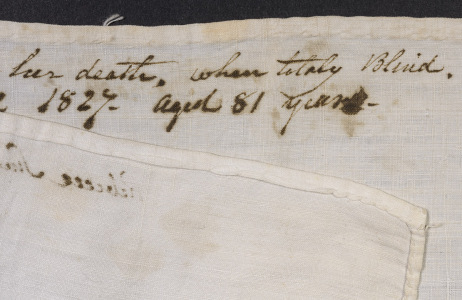 her death, when titaly Blind.
1827- aged 81 years-